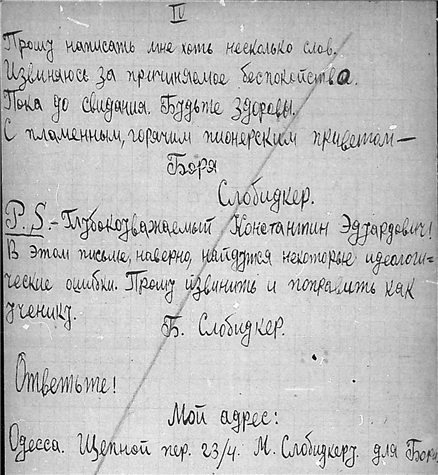 IV
Прошу написать мне хоть несколько слов.
Извиняюсь за причиняемое беспокойства.
Пока до свидания. Будьте здоровы.
С пламенным, горячим пионерским приветом —
Боря
Слобидкер.
P.S. - Глубокоуважаемый Константин Эдуардович!
В этом письме, наверно, найдутся некоторые идеологи=
ческие ошибки. Прошу извинить и поправить как
ученику.
Б. Слобидкер.
Ответьте!
Мой адрес:
Одесса. Щепной пер. 23/4. М. Слобидкеру. для Бори